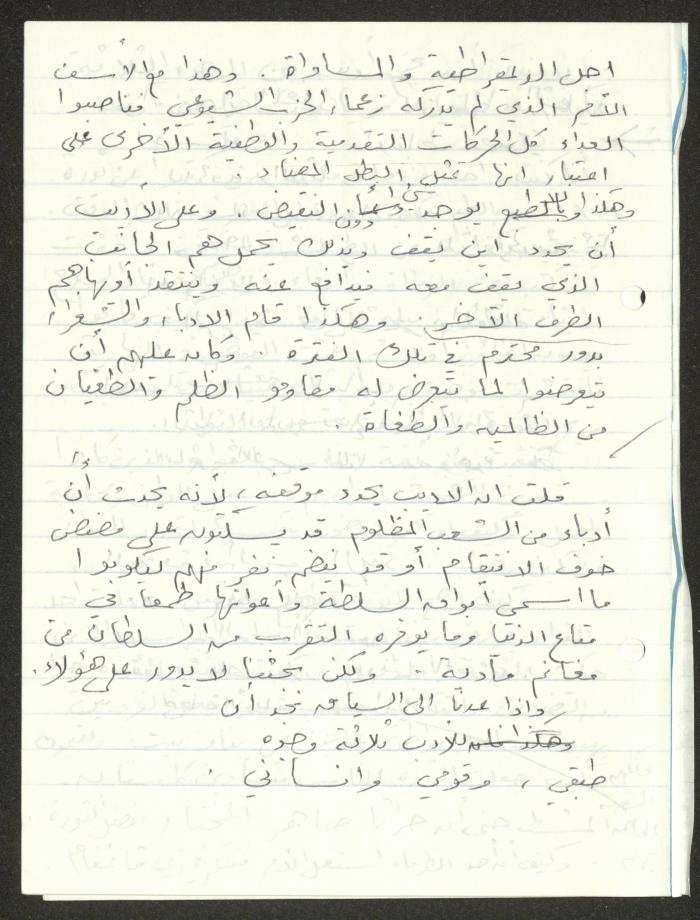 اجل الديمقراطية والمساواة. وهذا مع الأسف
الأمر الذي لم يدركه زعماء الحزب الشيوعي فناصبوا
العداء كل الحركات التقدمية والوطنية الأخرى على
اعتبار انها تمثل البطل المضاد.
وهكذا وبالطبع يوجد دون النقيض. وعلى الأديب
أن يحدد اين يقف وبذلك يحمل هم الجانب
الذي يقف معه فيدافع عنه وينتقد أو يهاجم
الطرف الآخر. وهكذا قام الادباء والشعراء
بدور محترم في تلك الفترة. وكان عليهم أن
يتعرضوا لما تعرض له مقاومو الظلم والطغيان
من الظالمين والطغاة.
قلت ان الاديب يحدد موقفه، لأنه يحدث أن
أدباء من الشعب المظلوم قد يسكتون على مضض
خوف الانتقام أو قد ينضم نفر منهم ليكونوا
ما اسمي أبواق السلطة وأعوانها طمعا في
متاع الدنيا وما يوفره التقرب من السلطان من
مغانم مادية. ولكن بحثنا لا يدور على هؤلاء.
واذا عدنا الى السياسة نجد أن
وهكذا للأدب ثلاثة وجوه
طبقي، وقومي وانساني.